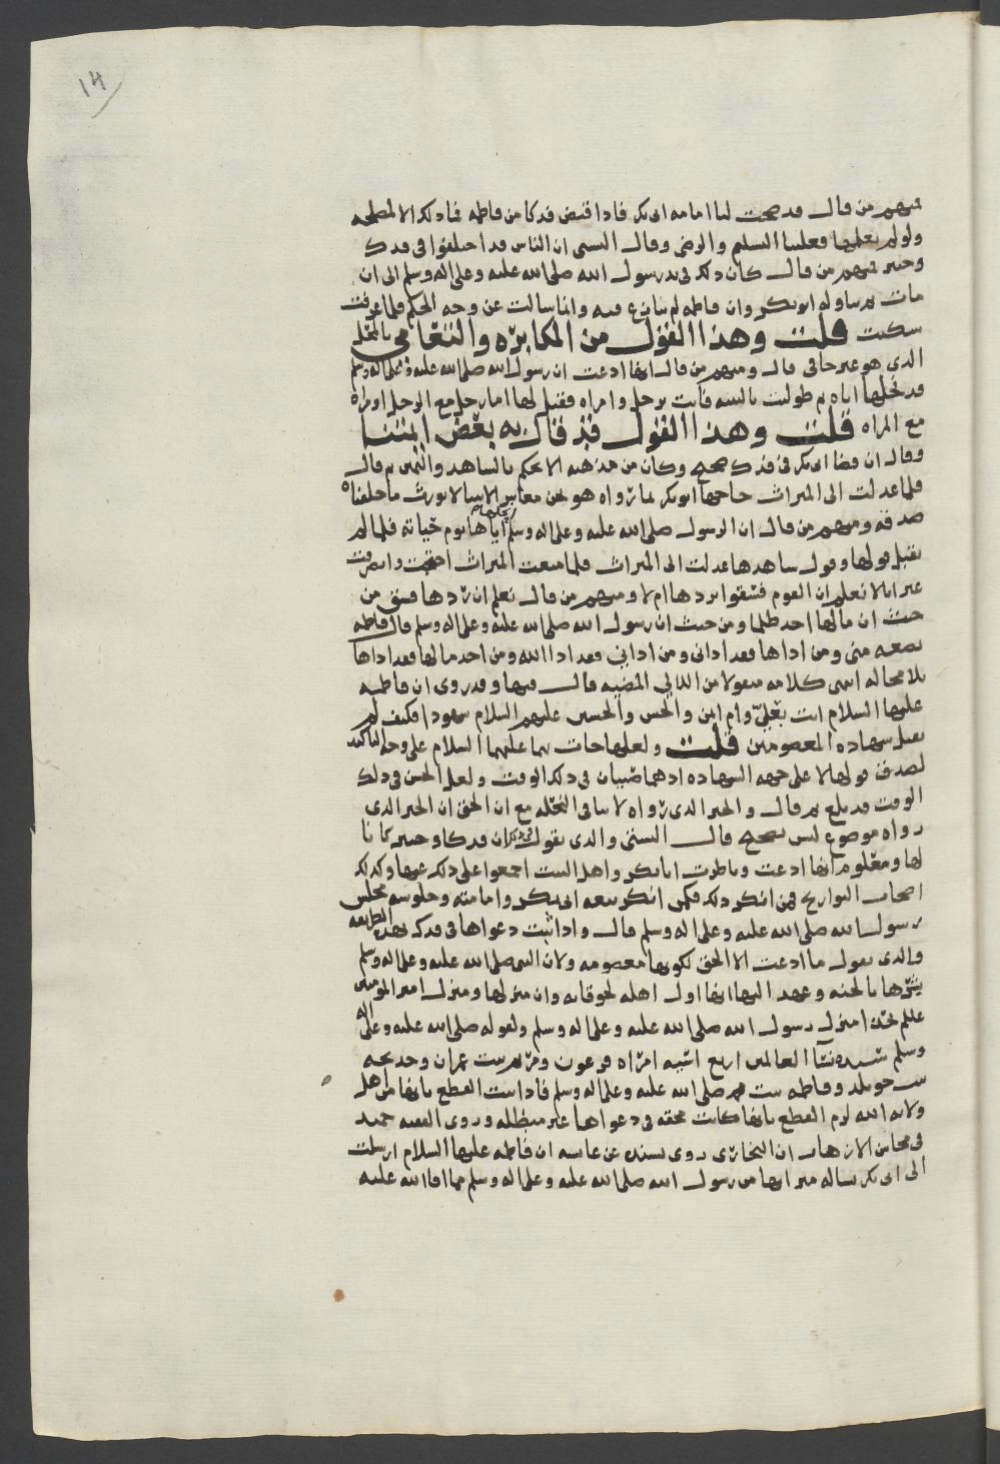 ١٤
فمنهم من قال قد صحت لنا امامه ابى بكر فاذا قبض فدكا من فاطمه فما ذلك الا لمصلحه
ولو لم نعلمها فعلينا التسليم والرضى وقال السنى ان الناس قد اختلفوا فى فدك
وخيبر فمنهم من قال كان ذلك فى يد رسول الله صلى الله عليه وعلى اله وسلم الى ان
مات ثم تناوله ابو بكر وان فاطمه لم تنازع فيه وانما سالت عن وجه الحكم فلما عرفت
سكتت قلت وهذا القول من المكابره والتعامى بالمحل
الذى هو غير خافى قال ومنهم من قال انها ادعت ان رسول الله صلى الله عليه وعلى اله وسلم
قد نحلها اياه ثم طولبت بالبينه فاتت برجل وامراه فقيل لها اما رجل مع الرجل او مراه
مع المراه قلت وهذا القول قد قال به بعض ائمتنا
وقال ان قضا ابى بكر فى فدك صحيح وكان من مذهبه الا يحكم بالشاهد واليمين ثم قال
فلما عدلت الى الميراث حاجها ابو بكر بما رواه هو نحن معاشر الانبيا لا نورث ما خلفناه
صدقه ومنهم من قال ان الرسول صلى الله عليه وعلى اله وسلم اياها يوم خياته فلما لم
يقبل قولها وقول شاهدها عدلت الى الميراث فلما منعت الميراث احتجت وانصرفت
غير انا لا نعلم ان القوم فسقوا بردها ام لا ومنهم من قال نعلم ان ردها فسق من
حيث ان مالها اخذ ظلما ومن حيث ان رسول الله صلى الله عليه وعلى اله وسلم قال فاطمه
بضعه منى ومن اذاها فقد اذانى ومن اذانى فقد اذا الله ومن اخذ مالها فقد اذاها
بلا محاله انتهى كلامه منقولا من اللالى المضيه قال فيها وقد روى ان فاطمه
عليها السلام اتت بعلىّ وام ايمن والحسن والحسين عليهم السلام شهودا فكيف لم
تقبل شهاده المعصومين قلت ولعلها جات بهما عليهما السلام على وجه التاكيد
لصدق قولها لا على جهه الشهاده اذ هما صبيان فى ذلك الوقت ولعل الحسن فى ذلك
الوقت قد بلغ ثم قال والخبر الذى رواه لا ينافى النحله مع ان الحق ان الخبر الذى
رواه موضوع ليس بصحيح قال السنى والذى نقول ان فدكا وخيبر كانا
لها ومعلوم انها ادعت وناظرت ابا بكر واهل البيت اجمعوا على ذلك عنها وكذلك
اصحاب التواريخ فمن انكر ذلك فكمن انكر بيعه ابى بكر وامامته وجلوسه مجلس
رسول الله صلى الله عليه وعلى اله وسلم قال واذا ثبت دعواها فى فدك بهذه الطريقه
والذى نقول ما ادعت الا الحق لكونها معصومه ولان النبى صلى الله عليه وعلى اله وسلم
بشرها بالجنه وعهد اليها انها اول اهله لحوقا به وان منزلها ومنزل امير المومنين
عليلم بحذا منزل رسول الله صلى الله عليه وعلى اله وسلم ولقوله صلى الله عليه وعلى اله
وسلم سيده نسآ العالمين اربع اسيه امراه فرعون ومريم بنت عمران وخديجه
بنت خويلد وفاطمه بنت محمد صلى الله عليه وعلى اله وسلم فاذا ثبت القطع بانها من اهل
ولايه الله لزم القطع بانها كانت محقه فى دعواها غير مبطله وروى الفقيه حميد
فى محاسن الازهار ان البخارى روى بسنده عن عايشه ان فاطمه عليها السلام ارسلت
الى ابى بكر تساله ميراثها من رسول الله صلى الله عليه وعلى اله وسلم مما افا الله عليه